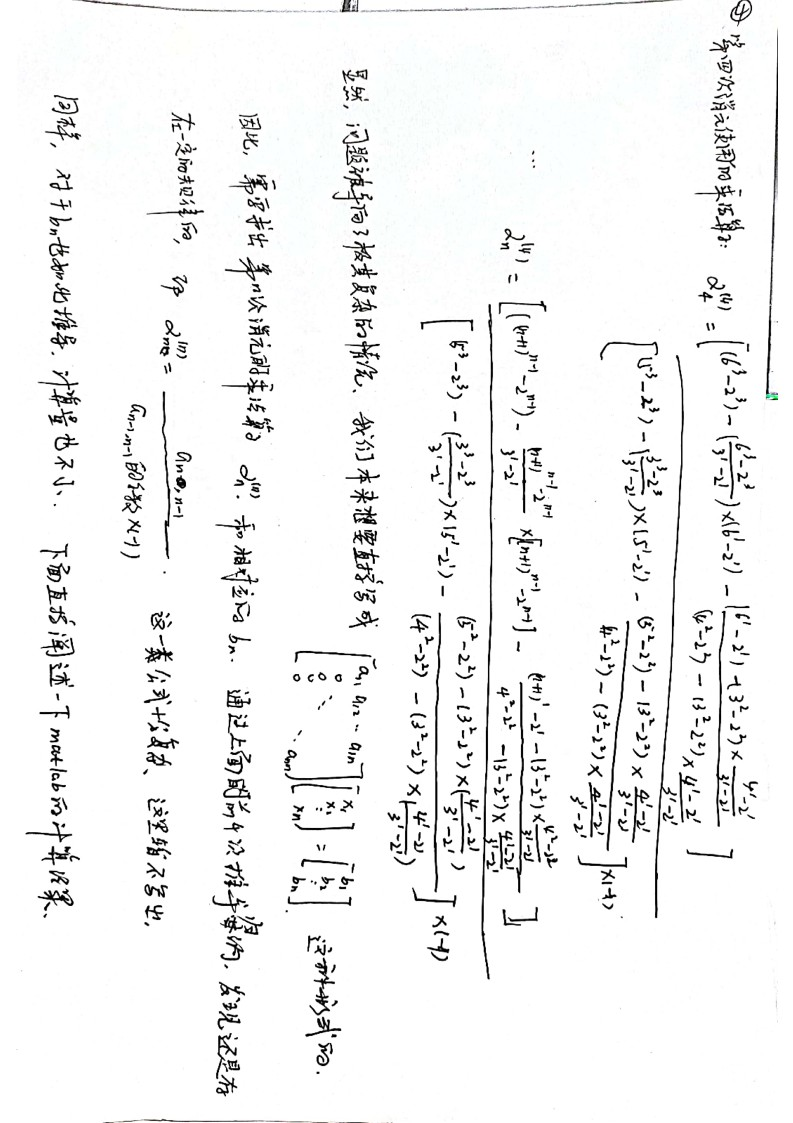 ④ 第四次消元使用的乘法算子: α₄⁽⁴⁾ = [(6³-2³) - (6³-2³ / 3¹-2¹)×(6¹-2¹) - (6¹-2¹) - (3²-2²)× 4¹-2¹ / 3¹-2¹ / (4²-2²) - (3²-2²)× 4¹-2¹ / 3¹-2¹ ]
[(5³-2³) - (3³-2³ / 3¹-2¹)×(5¹-2¹) - (5²-2²) - (3²-2²)× 4¹-2¹ / 3¹-2¹ / 4²-2²) - (3²-2²)× 4¹-2¹ / 3¹-2¹ ] ×(-1)
...
αₙ⁽⁴⁾ = [((n+1)ⁿ⁻¹-2ⁿ⁻¹) - (n+1)ⁿ⁻¹-2ⁿ⁻¹ / 3¹-2¹ ×[(n+1)ⁿ⁻¹-2ⁿ⁻¹] - (n+1)¹-2¹-(3²-2²)× 4²-2² / 3¹-2¹ / 4²-2² - (3²-2²)× 4¹-2¹ / 3¹-2¹ ]
[(5³-2³) - (3³-2³ / 3¹-2¹)×(5¹-2¹) - (5²-2²) - (3²-2²)×(4¹-2¹ / 3¹-2¹) / (4²-2²) - (3²-2²)×(4¹-2¹ / 3¹-2¹) ] ×(-1)
显然, 问题被导向了极其复杂的情况、我们本来想要直接写成 [a₁₁ a₁₂ ‥ a₁ₙ 0 0 0 ⋱ aₙₙ][x₁ ⋮ xₙ] = [b₁ ⋮ bₙ]. 这种形式的.
因此, 需要求出第n次消元的乘法算子 αₙ⁽ⁿ⁾. 和相对应的 bₙ. 通过上面的前4次推导, 发现还是存
在一定的规律的, 即 = aₙ,ₙ₋₁ / aₙ₋₁,ₙ₋₁的系数×(-1) . 这一类公式十分复杂、这里暂不写出,
同样, 对于bₙ也如此推导. 计算量也不小、 下面直接阐述一下matlab的计算结果、